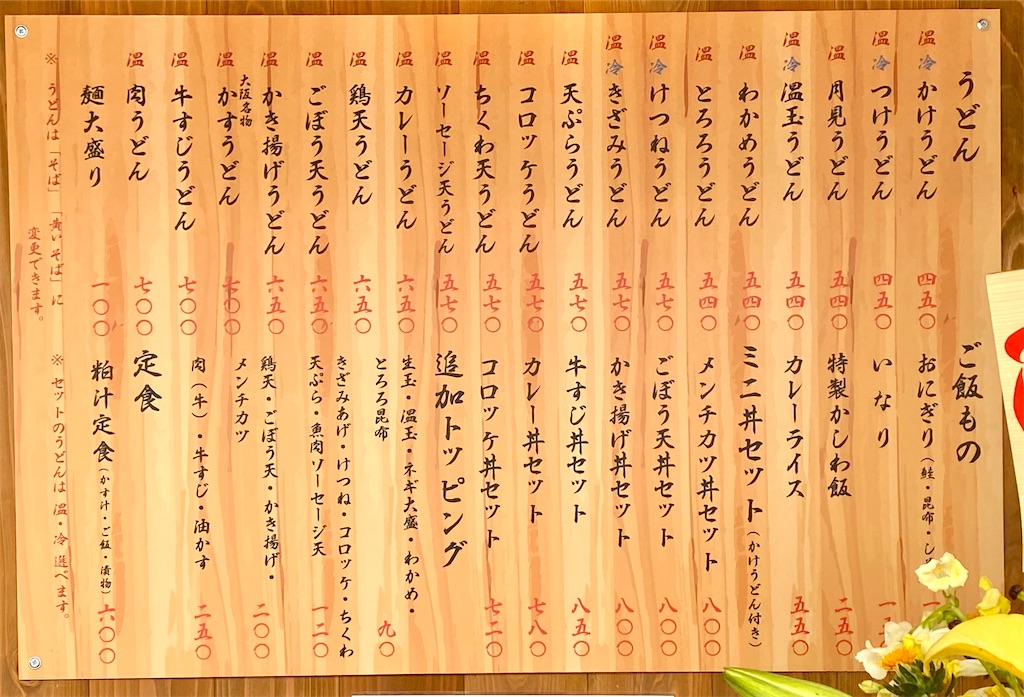 うどん
温 冷 かけうどん 四五〇
温 冷 つけうどん 四五〇
温 月見うどん 五四〇
温 冷 温玉うどん 五四〇
温 わかめうどん 五四〇
温 とろろうどん 五四〇
温 冷 けつねうどん 五七〇
温 冷 きざみうどん 五七〇
温 天ぷらうどん 五七〇
温 コロッケうどん 五七〇
温 ちくわ天うどん 五七〇
温 ソーセージ天うどん 五七〇
温 カレーうどん 六五〇
温 鶏天うどん 六五〇
温 ごぼう天うどん 六五〇
温 かき揚げうどん 六五〇
温 大阪名物 かすうどん 七〇〇
温 牛すじうどん 七〇〇
温 肉うどん 七〇〇
麺大盛り 一〇〇
※ うどんは「そば」「黄いそば」に
変更できます。
ご飯もの
おにぎり(鮭・昆布・し
いなり
特製かしわ飯 二五〇
カレーライス 五五〇
ミニ丼セット(かけうどん付き)
メンチカツ丼セット 八〇〇
ごぼう天丼セット 八〇〇
かき揚げ丼セット 八〇〇
牛すじ丼セット 八五〇
カレー丼セット 七八〇
コロッケ丼セット 七二〇
追加トッピング
生玉・温玉・ネギ大盛・わかめ・
とろろ昆布 九〇
きざみあげ・けつね・コロッケ・ちくわ
天ぷら・魚肉ソーセージ天 一二〇
鶏天・ごぼう天・かき揚げ・
メンチカツ 二〇〇
肉(牛)・牛すじ・油かす 二五〇
定食
粕汁定食(かす汁・ご飯・漬物) 六〇〇
※ セットのうどんは 温・冷 選べます。